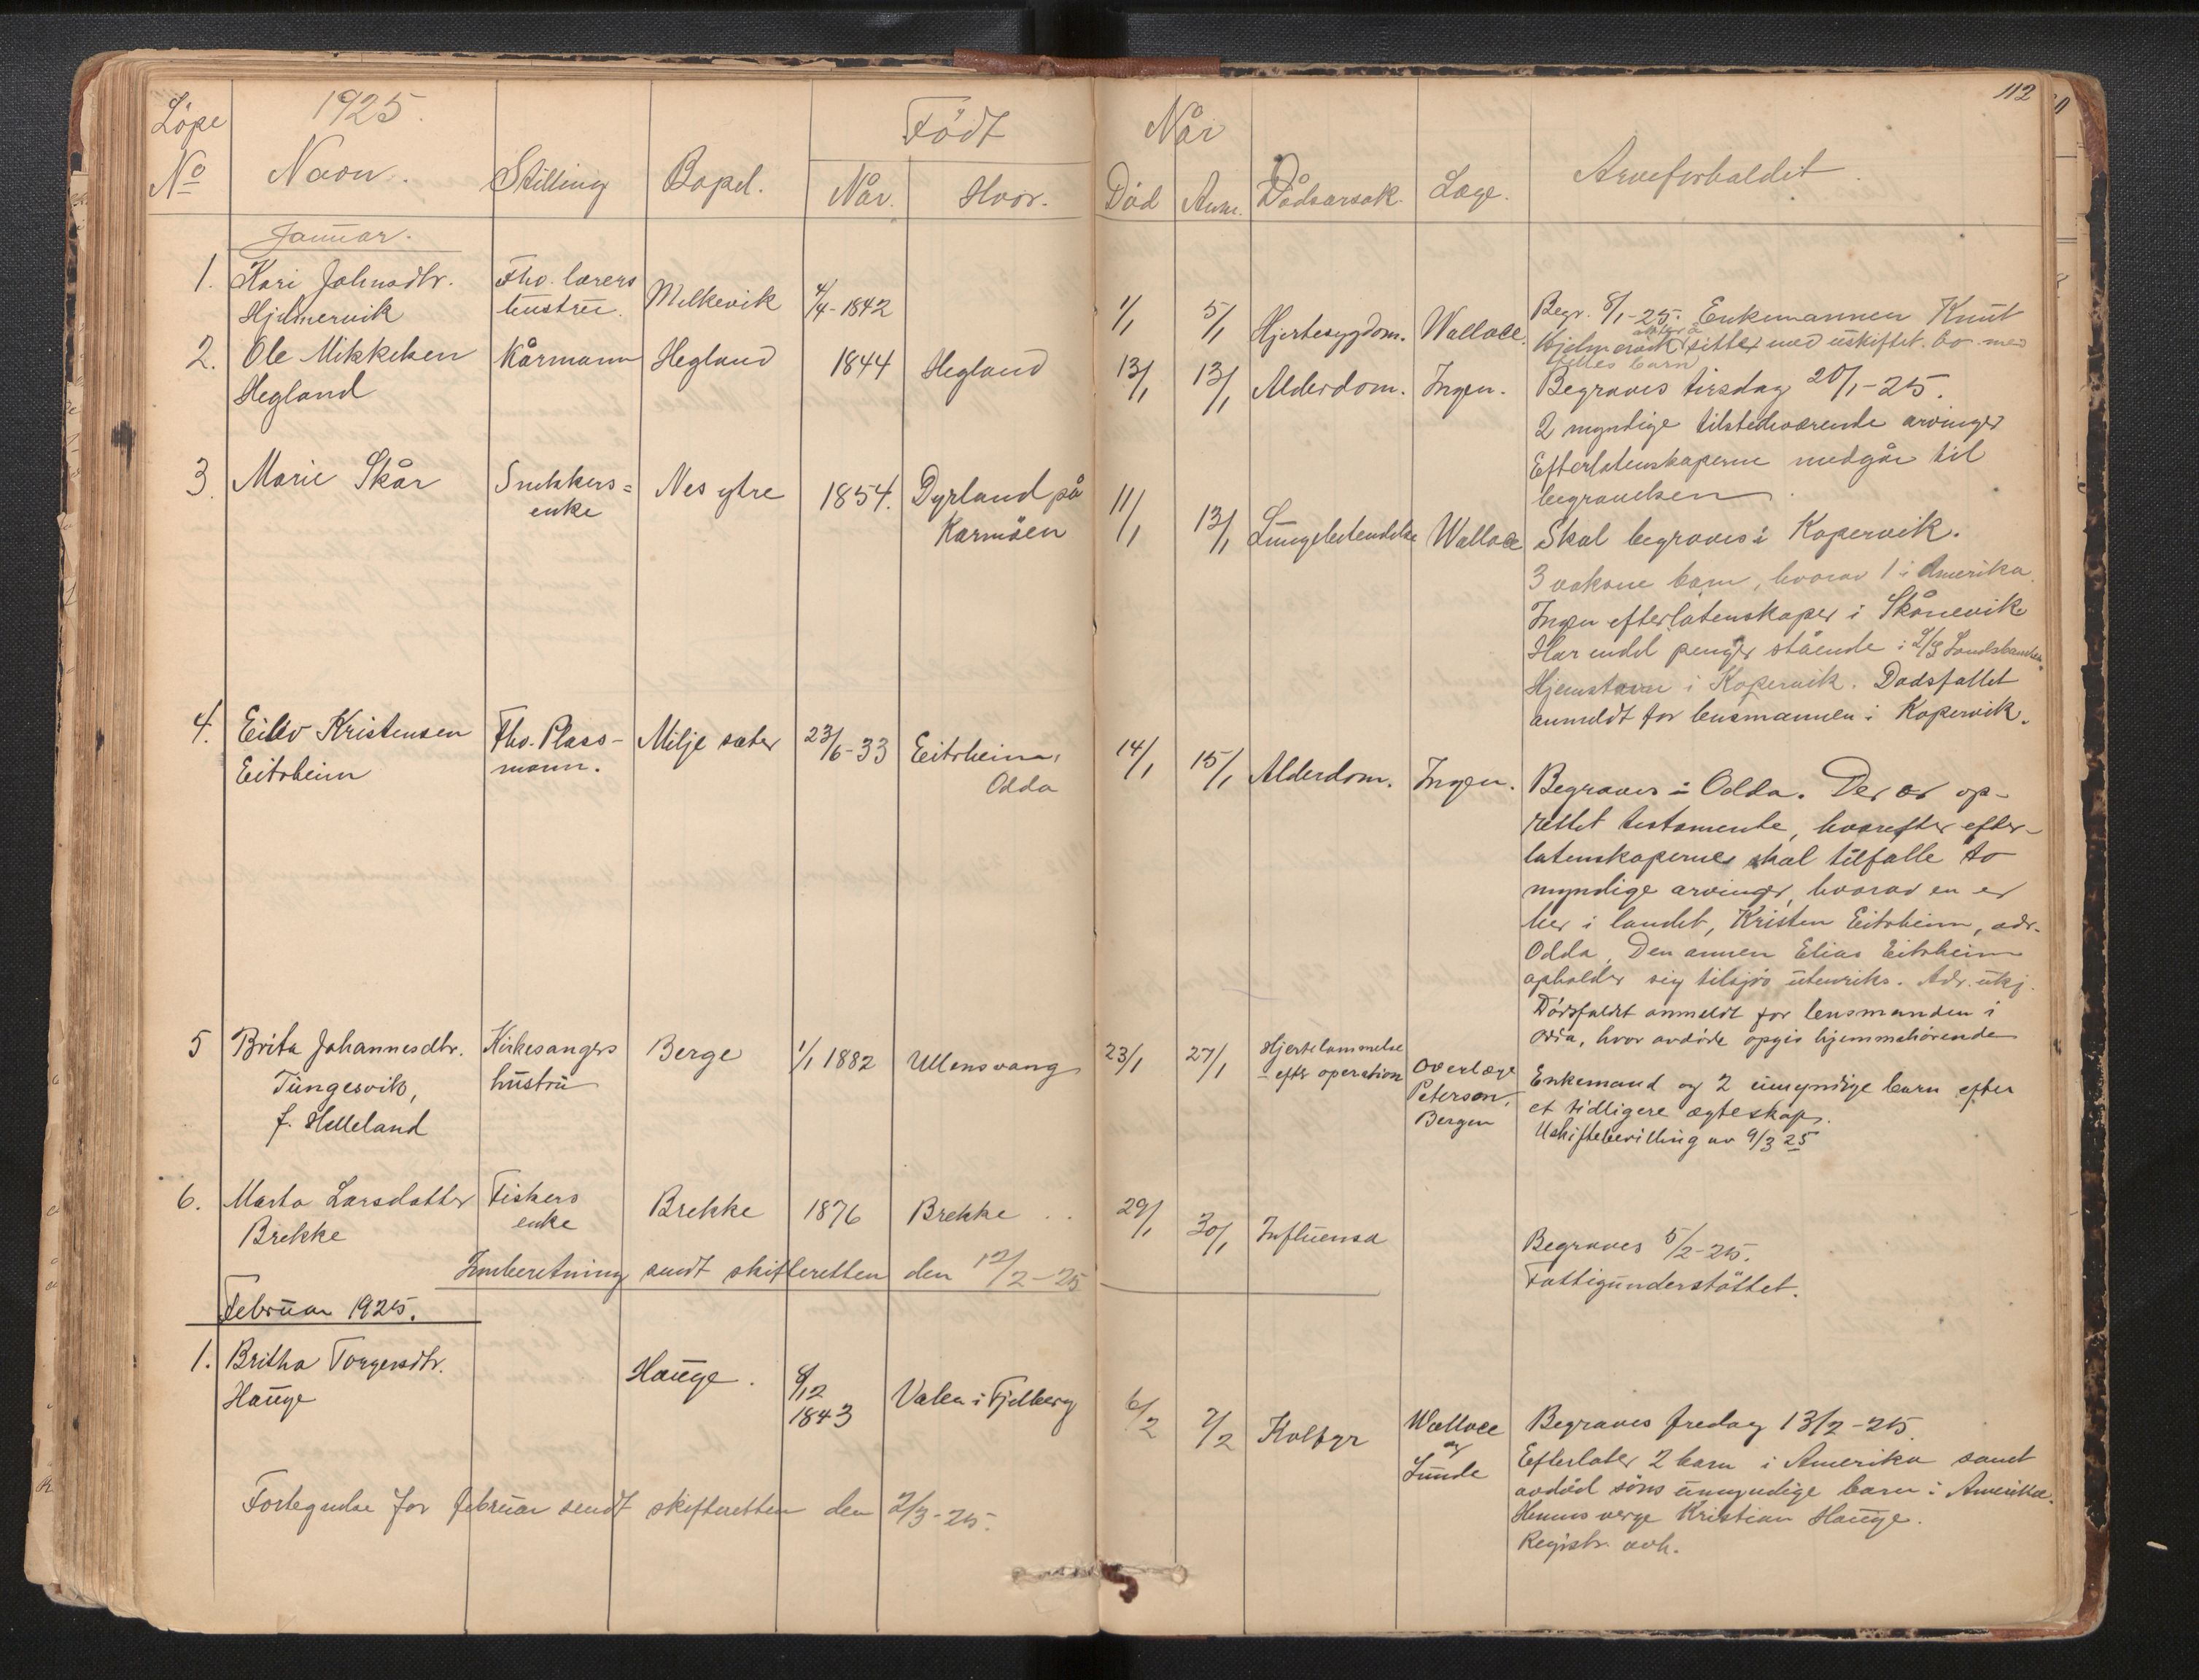 112
Löpe
No
1925.
Navn.
Stilling
Bopel.
Født
Når.
Hvor.
Når
Död
Anm.
Dödsårsak.
Læge.
Arveforholdet.
Januar.
1. Kari Johnsdtr. Fhv. lærers Melkevik 4/4-1842 1/1 5/1 Hjertesygdom. Wallace. Begr. 8/1-25. Enkemannen Knut
Hjelmervik hustru. Hjelmervik sitter med uskiftet bo med
felles barn
2. Ole Mikkelsen Kårmann Hegland 1844 Hegland 13/1 13/1 Alderdom. Ingen. Begraves tirsdag 20/1-25.
Hegland 2 myndige tilstedeværende arvinger
Efterlatenskaperne medgår til
begravelsen.
3. Marie Skår Snekkers= Nes ytre 1854. Dyrland på 11/1 13/1 Lungebetendelse Wallace Skal begraves i Kopervik.
enke Karmöen
3 voksne barn, hvorav 1 i Amerika.
Ingen efterlatenskaper i Skånevik
Har endel penger stående i Landsbanken.
Hjemstavn i Kopervik. Dødsfallet
anmeldt for lensmannen i Kopervik.
4. Eiliv Kristensen Fhv. Plass- Milje sæter 23/6-33 Eitrheim, 14/1 15/1 Alderdom. Ingen. Begraves i Odda. Der er op-
Eitrheim mann. Odda
rettet testamente, hvorefter efter-
latenskapernes skal tilfalle to
myndige arvinger, hvorav en er
her i landet, Kristen Eitrheim, adr.
Odda, Den annen Elias Eitrheim
opholder sig tilsjös utenriks. Adr. ukj.
Dödsfaldet anmeldt for lensmanden i
Odda, hvor avdöde opgis hjemmehörende
5 Brita Johannesdtr. Kirkesangers Berge 1/1 1882 Ullensvang 23/1 27/1 Hjertelammelse Overlæge Enkemand og 2 umyndige barn efter
Tungesvik, hustru efter operation Peterson, et tidligere ægteskap.
f. Helleland Bergen Uskiftebevilling av 9/3 25
6. Marta Larsdatter Fiskers Brekke 1876 Brekke 29/1 30/1 Influensa Begraves 5/2-25.
Brekke enke Fattigunderstöttet.
Innberetning sendt skifteretten den 12/2-25
Februar 1925.
1. Britha Torgersdtr. Hauge. 8/12 Valen i Fjelberg 6/2 7/2 Koldfyr Wallace Begraves fredag 13/2-25.
Hauge 1843 og Efterlater 2 barn i Amerika samt
Lunde avdöd söns umyndige barn i Amerika.
Hennes verge Kristian Hauge.
Registr. avh.
Fortegnelse for februar sendt skifteretten den 2/3-25.